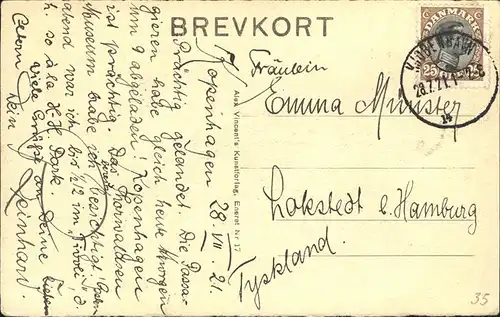 BREVKORT
Kopenhagen 28. VII. 21.
Prächtig gelandet. Die Passa-
gieren habe gleich heute Morgen
um 9 abgeladen! Kopenhagen
ist prächtig. Das Thorwaldsen
Museum habe ich besichtigt. Gestern
abend war ich bis ½12 im Tivoli, d.
h. so à la H-H Park.
Viele Grüße an Deine lieben
Eltern
Dein Reinhard.
Alex Vincent's Kunstforlag, Eneret Nr 17
DANMARK
25
28.7.21
14
Fräulein
Emma Münster
Lokstedt b. Hamburg
Tyskland.
35